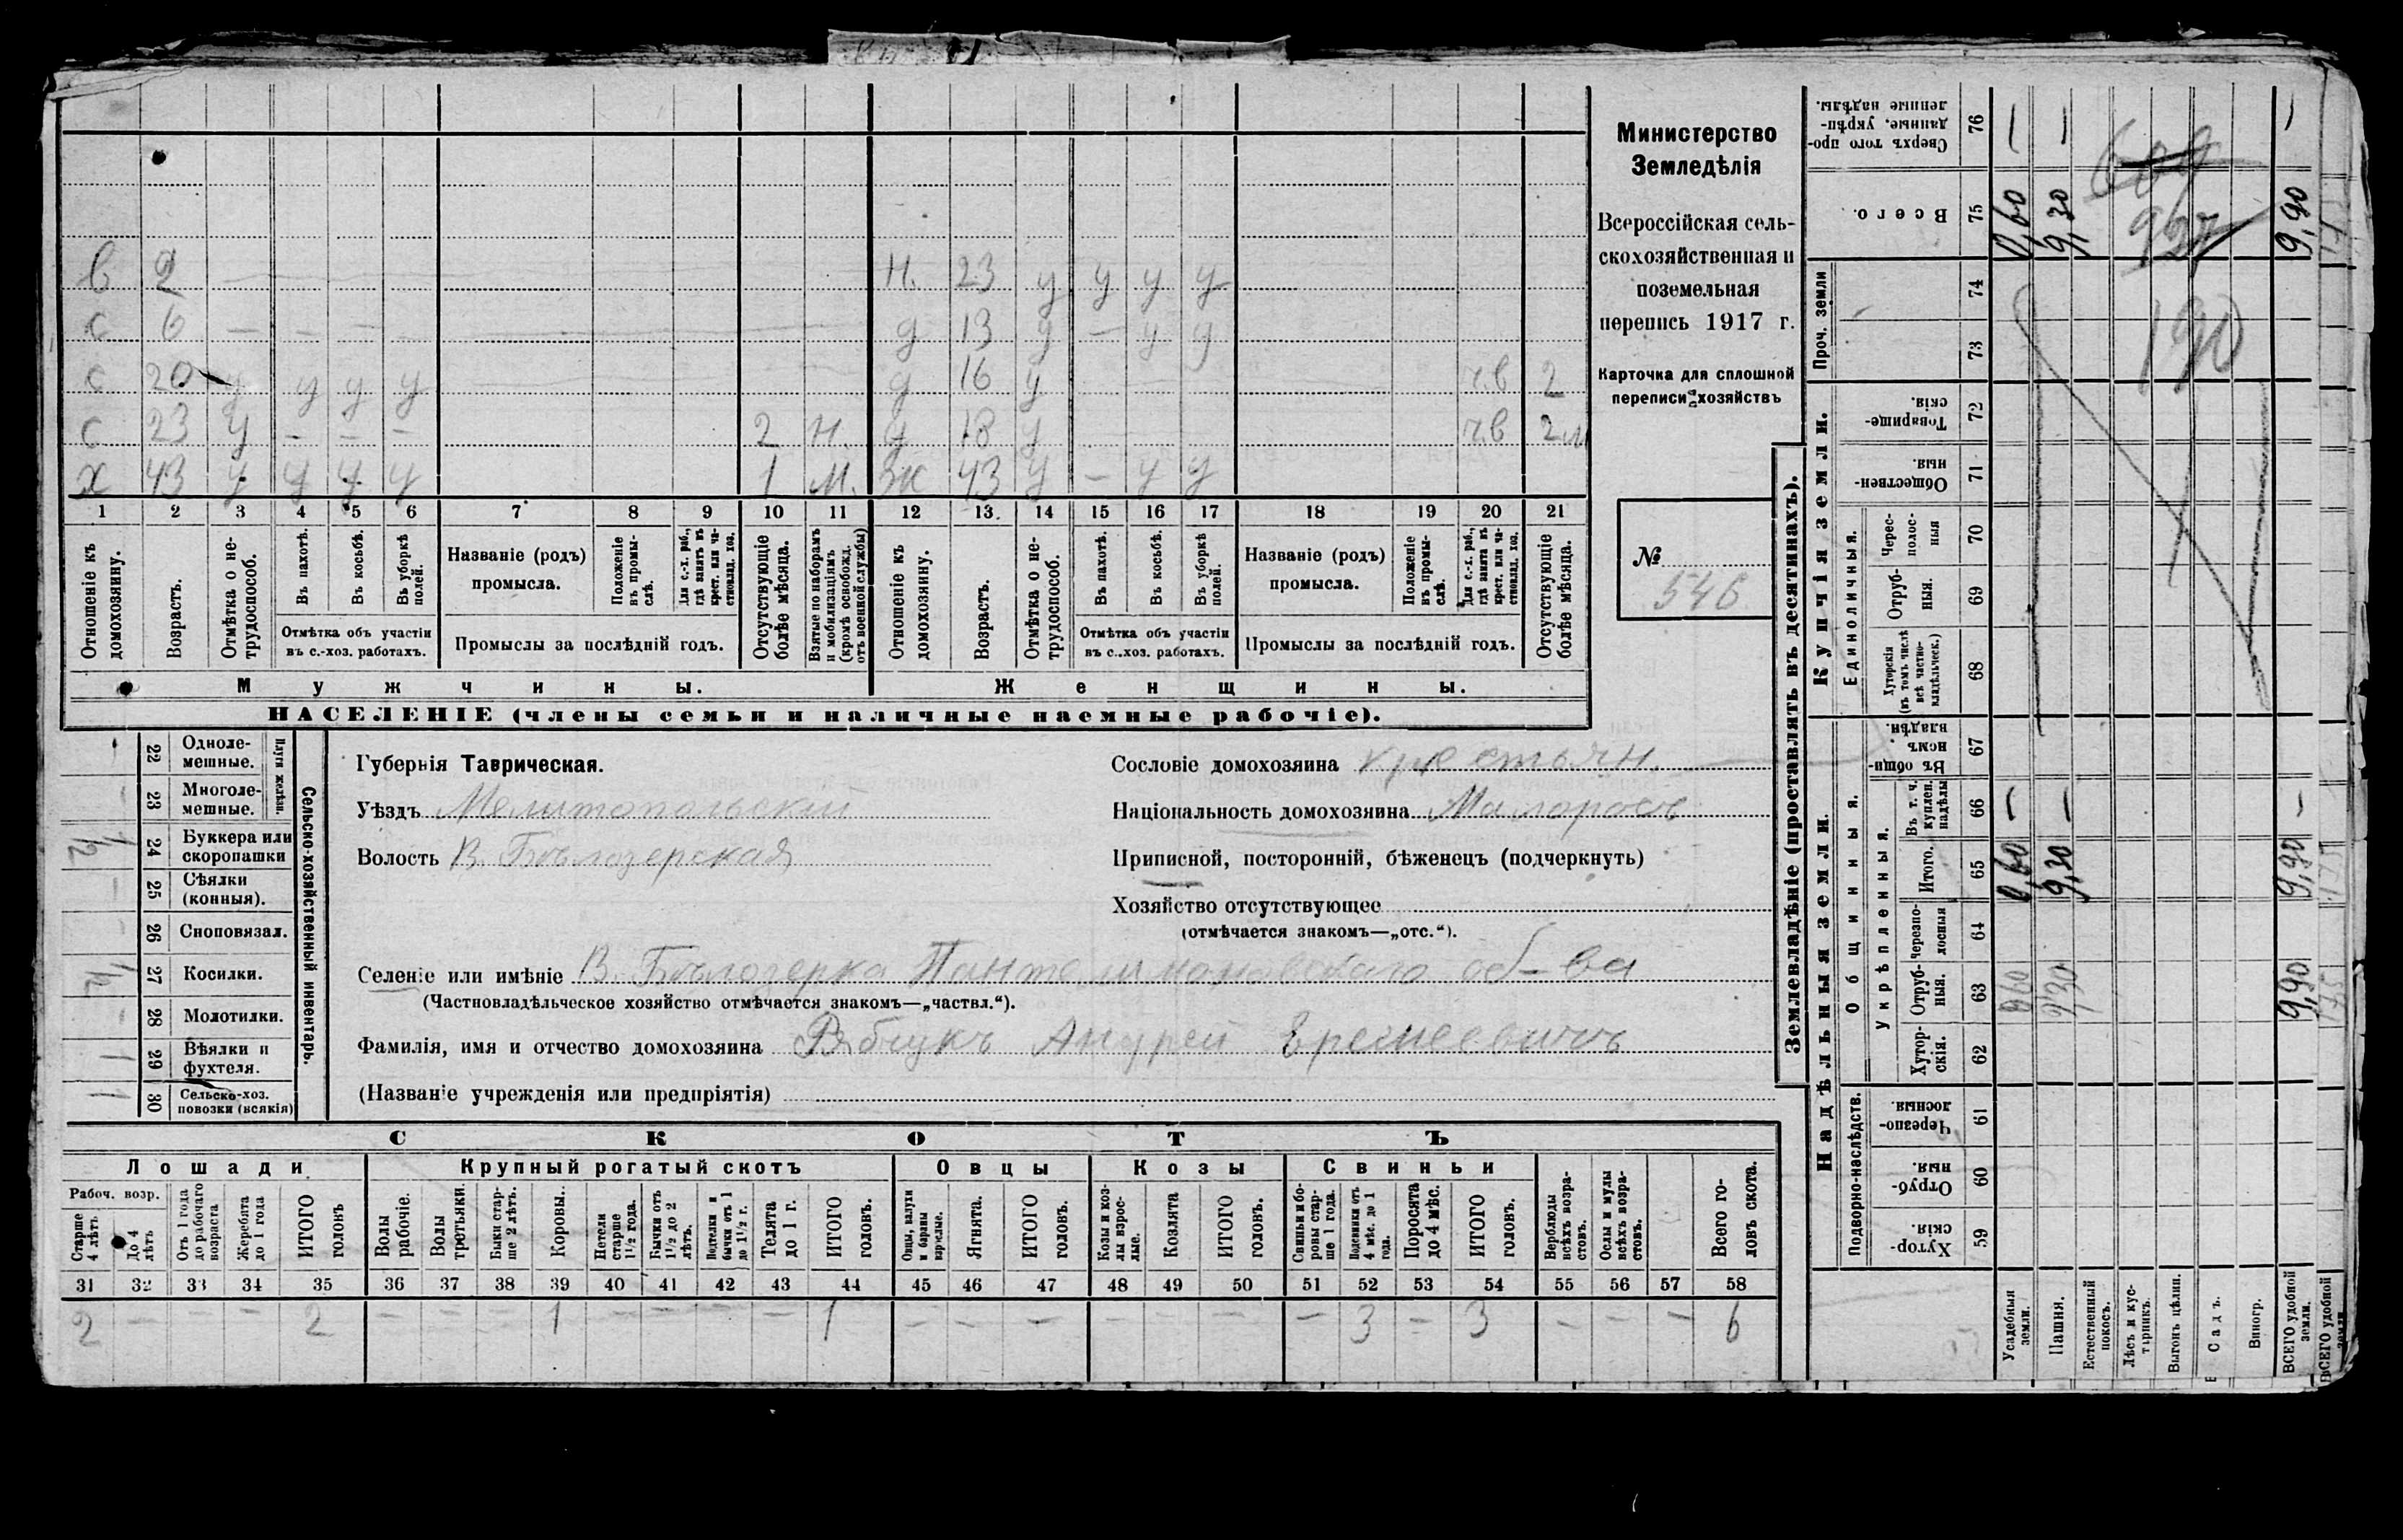 в 2 Н. 23 у у у у
с 6 — — — д 13 у — у у
с 20 у у у у д 16 у ч.в 2
с 23 у — — — 2 Н. д 18 у ч.в 2 м
х 43 у у у у 1 М. Ж 43 у — у у
1 2 3 4 5 6 7 8 9 10 11 12 13. 14 15 16 17 18 19 20 21
Отношеніе къ домохозяину.
Возрастъ.
Отмѣтка о не-
трудоспособ.
Въ пахотѣ.
Въ косьбѣ.
Въ уборкѣ
полей.
Отмѣтка объ участіи
въ с.-хоз. работахъ.
Названіе (родъ)
промысла.
Положеніе
въ промы-
слѣ.
Для с.-х. раб.,
гдѣ занятъ въ
крест. или ча-
стновлад. хоз.
Промыслы за послѣдній годъ.
Отсутствующіе
болѣе мѣсяца.
Взятые по наборамъ
и мобилизаціямъ
(кромѣ освобожд.
отъ военной службы)
Отношеніе къ
домохозяину.
Возрастъ.
Отмѣтка о не-
трудоспособ.
Въ пахотѣ.
Въ косьбѣ.
Въ уборкѣ
полей.
Отмѣтка объ участіи
въ с.-хоз. работахъ.
Названіе (родъ)
промысла.
Положеніе
въ промы-
слѣ.
Для с.-х. раб.,
гдѣ занятъ въ
крест. или ча-
стновлад. хоз.
Промыслы за послѣдній годъ.
Отсутствующіе
болѣе мѣсяца.
Мужчины.
Женщины.
НАСЕЛЕНІЕ (члены семьи и наличные наемные рабочіе).
Министерство
Земледѣлія
Всероссійская сель-
скохозяйственная и
поземельная
перепись 1917 г.
Карточка для сплошной
переписи хозяйствъ
№
546
22 Одноле-
мешные.
23 Многоле-
мешные.
Плуги желѣзн.
24 Буккера или
скоропашки 1/2
25 Сѣялки
(конныя).
26 Сноповязал.
27 Косилки. 1/2
28 Молотилки.
29 Вѣялки и
фухтеля. 1
30 Сельско-хоз.
повозки (всякія) 1
Сельско-хозяйственный инвентарь.
Губернія Таврическая.
Уѣздъ Мелитопольскій
Волость В. Бѣлозерская
Сословіе домохозяина крестьян.
Національность домохозяина Малоросъ
Приписной, посторонній, бѣженецъ (подчеркнуть)
Хозяйство отсутствующее
(отмѣчается знакомъ—„отс.“).
Селеніе или имѣніе В. Бѣлозерка Пантелимоновскаго об-ва
(Частновладѣльческое хозяйство отмѣчается знакомъ—„частвл.“).
Фамилія, имя и отчество домохозяина Рябчукъ Андрей Еремеевичъ
(Названіе учрежденія или предпріятія)
СКОТЪ
Лошади
Крупный рогатый скотъ
Овцы
Козы
Свиньи
Рабоч. возр.
Старше
4 лѣтъ
До 4
лѣтъ
Отъ 1 года
до рабочаго
возраста
Жеребята
до 1 года
ИТОГО
головъ
Волы
рабочіе.
Волы
третьяки.
Быки стар-
ше 2 лѣтъ.
Коровы.
Нетели
старше
1 1/2 года.
Бычки отъ
1 1/2 до 2
лѣтъ.
Подтелки и
бычки отъ 1
до 1 1/2 г.
Телята
до 1 г.
ИТОГО
головъ.
Овцы, валухи
и бараны
взрослые.
Ягнята.
ИТОГО
головъ.
Козы и коз-
лы взрос-
лые.
Козлята
ИТОГО
головъ.
Свиньи и бо-
ровы стар-
ше 1 года.
Подсвинки отъ
4 мѣс. до 1
года.
Поросята
до 4 мѣс.
ИТОГО
головъ.
Верблюды
всѣхъ возра-
стовъ.
Ослы и мулы
всѣхъ возра-
стовъ.
Всего го-
ловъ скота.
31 32 33 34 35 36 37 38 39 40 41 42 43 44 45 46 47 48 49 50 51 52 53 54 55 56 57 58
2 — — — 2 — — — 1 — — — — 1 — — — — — — — 3 — 3 — — — 6
Землевладѣніе (проставлять въ десятинахъ).
Сверхъ того про-
данные, укрѣп-
ленные надѣлы. 76 — — —
Всего. 75 0,60 9,30 9,90
Проч. земли 74
73
Купчія земли.
Товарище-
скія. 72
Обществен-
ныя. 71
Единоличныя.
Черес-
полос-
ныя 70
Отруб-
ныя. 69
Хуторскія
(въ томъ числѣ
всѣ частно-
владѣльческ.) 68
Надѣльныя земли.
Общинныя.
Въ общи-
номъ
владѣн. 67
Укрѣпленныя.
Въ т. ч.
куплен.
надѣлы 66 — — —
Итого. 65 0,60 9,30 9,90
Черезпо-
лосныя 64
Отруб-
ныя. 63 0,60 9,30 9,90
Хутор-
скія. 62
Подворно-наслѣдств.
Черезпо-
лосныя 61
Отруб-
ныя. 60
Хутор-
скія. 59
609
927
190
Усадебныя
земли.
Пашня.
Естественный
покосъ.
Лѣсъ и кус-
тарникъ.
Выгонъ цѣлин.
Садъ.
Виногр.
ВСЕГО удобной
земли.
ВСЕГО удобной
земли